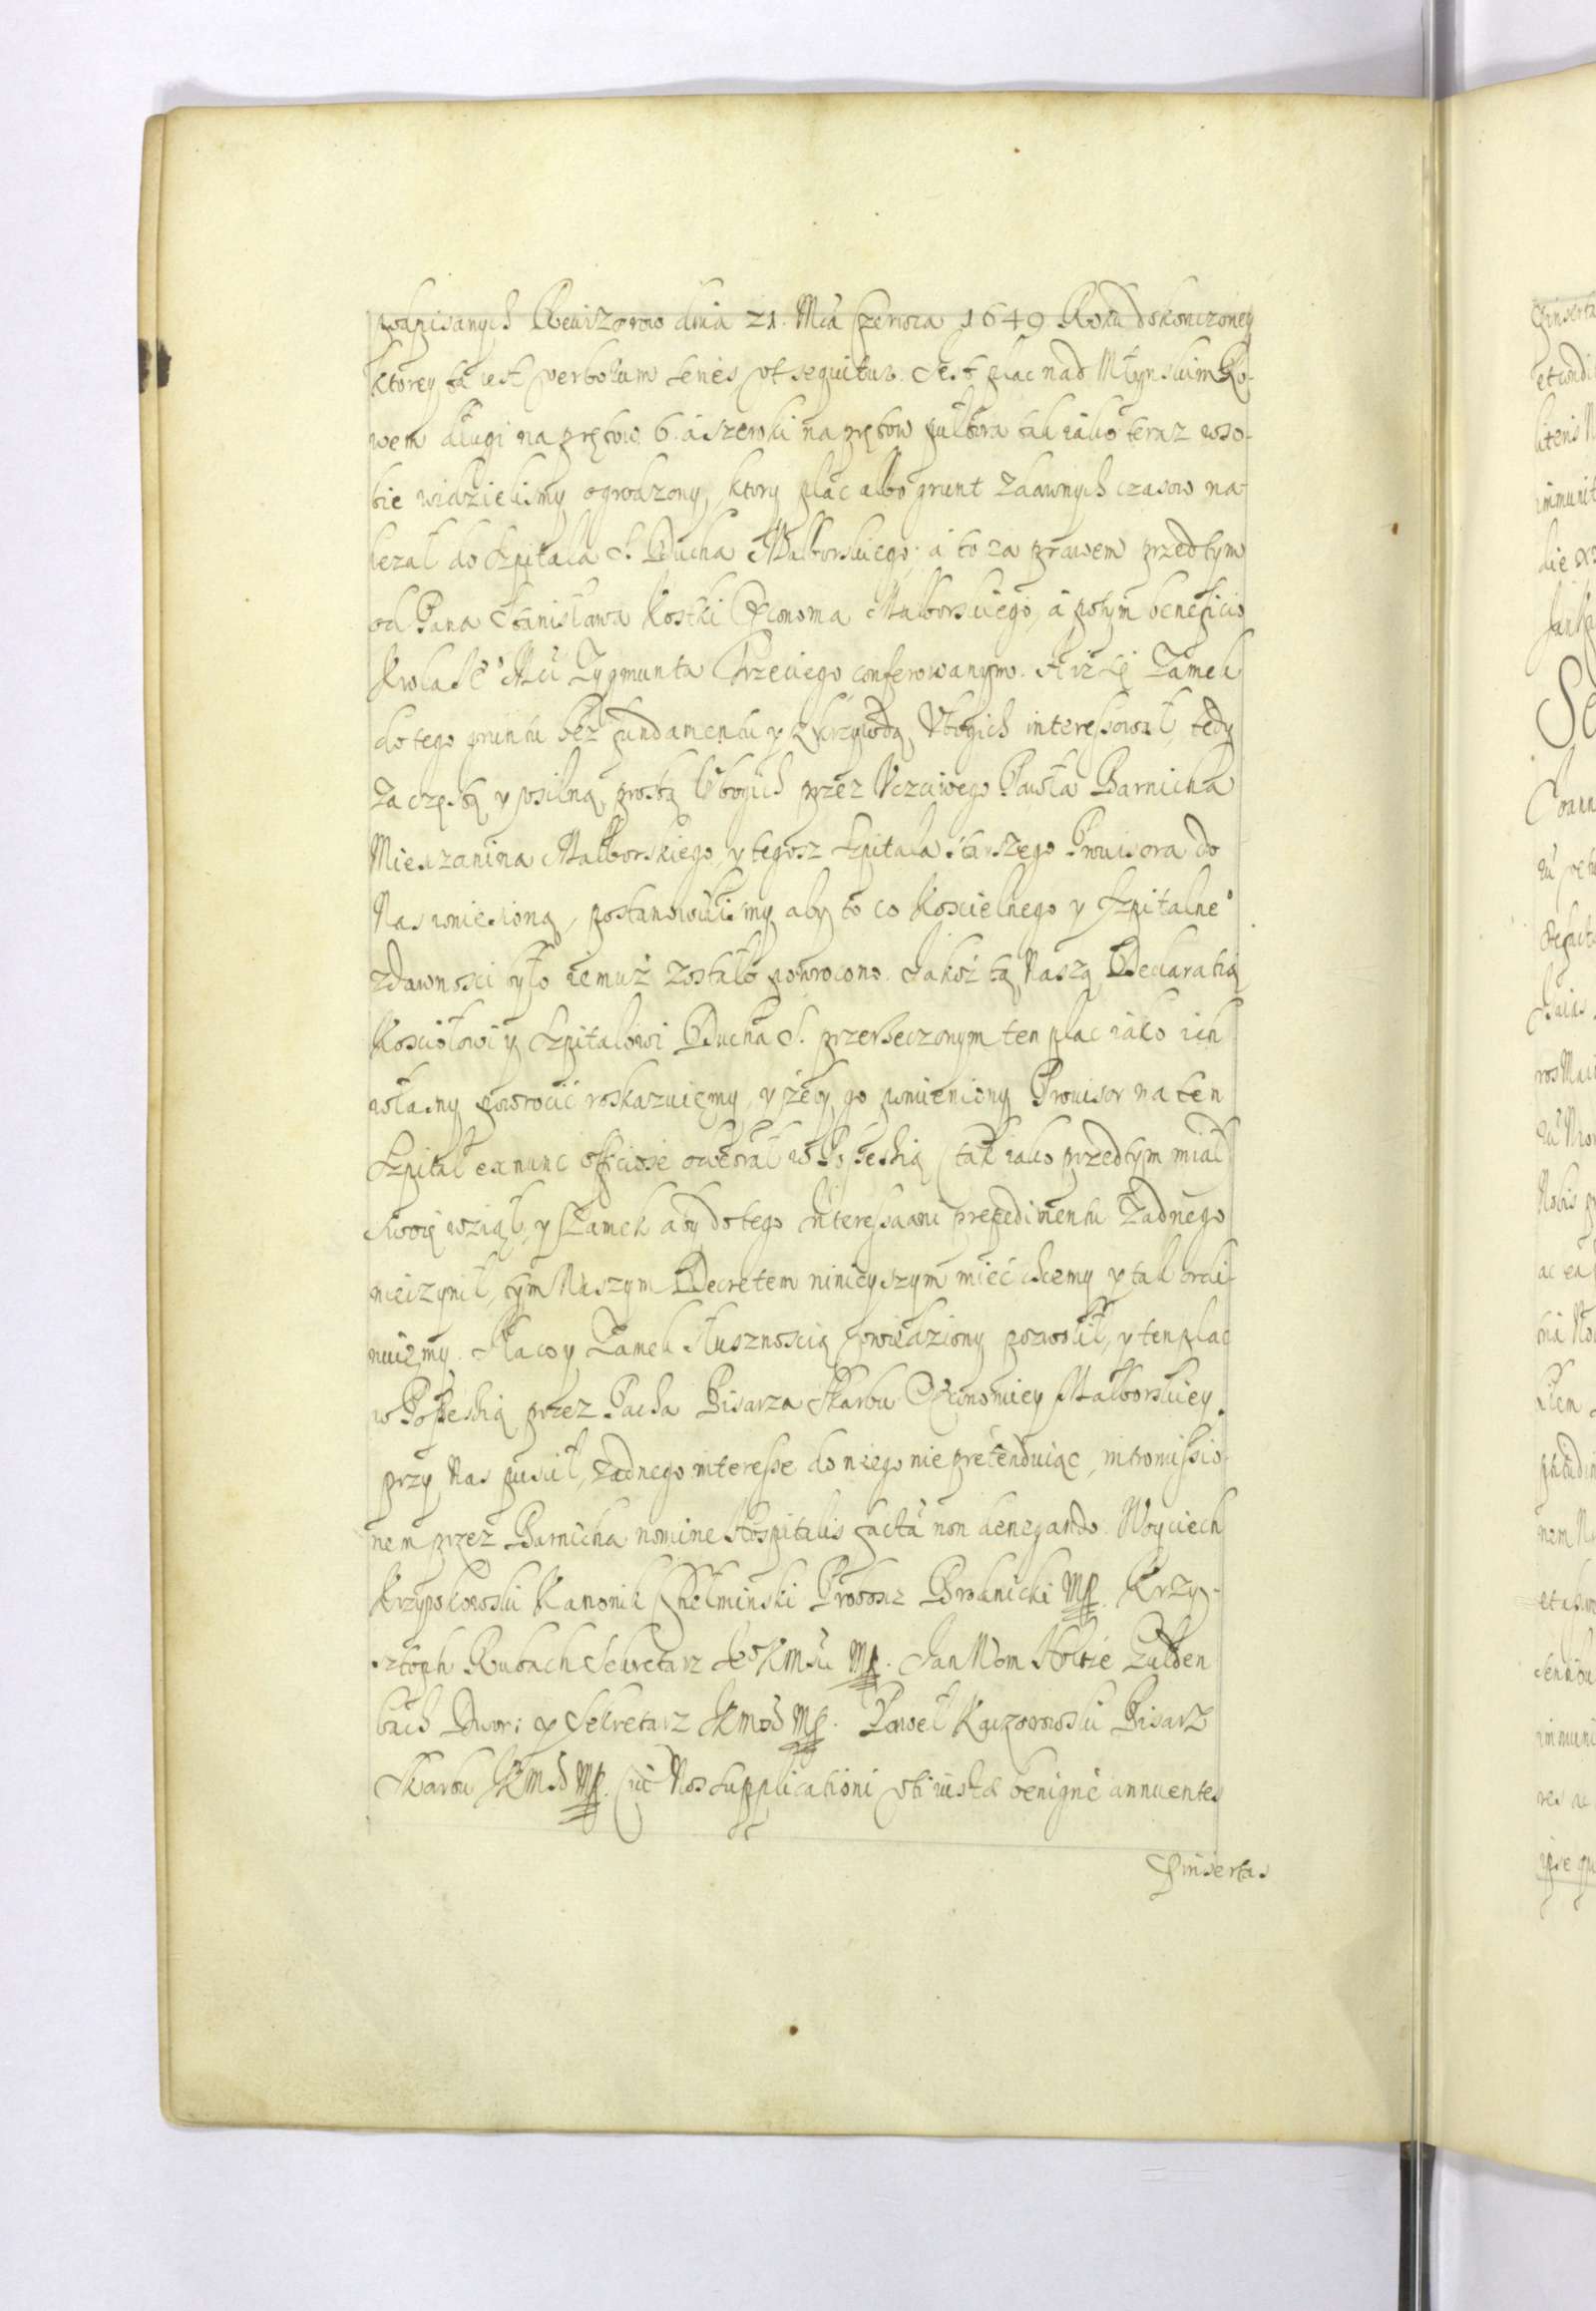 podpisanych Rewizorow dnia 21. Mca Czerwca 1649 Roku dokonczoney
ktorey ta iest verborum series, vt sequitur. Jest plac nad Młynskim Ro-
wem długi na prętow. 6. á szeroki na prętow pułtora tak iako teraz w so-
bie widzielismy ogrodzony, ktory plac albo grunt zdawnych czasow na-
lezał do Szpitala S. Ducha Malborskiego; á to za prawem przedtym
od Pana Stanisława Kostki Œconoma Malborskiego, á potym beneficio
Krola Je° Mci Zygmunta Trzeciego conferowanym. A iż się Zamek
do tego gruntu bez fundamentu y z krzywdą Vbogich interessował, tedy
za częstą y vsilną prosbą Vbogich przez Vczciwego Pawła Barnicka
Mieszczanina Malborskiego, y tegosz Szpitala starszego Prouisora do
Nas wniesioną, postanowilismy aby to co Koscielnego y Szpitalne°
zdawnosci było iemuż zostało powrocono. Jakoż tą Naszą Declaratią
Kosciołowi y Szpitalowi Ducha S. przerzeczonym ten plac iako ich
własny powrocić roskazuięmy, y żeby go pomieniony Prouisor na ten
Szpital ex nunc officiose odebrał w Possessią (tak iako przedtym miał
swoię wziął, y Zamek aby do tego interessu ani prepedimentu żadnego
nieczynił, tym Naszym Decretem ninieyszym mieć chcemy y tak ordi-
nuiemy. Na co y Zamek słusznoscią powiedziony pozwolił, y ten plac
w Possessią przez Pacha Pisarza Skarbu Œconomiey Malborskiey
przy Nas puscił, żadnego interesse do niego nie pretenduiąc, intromissio-
nem przez Barnicka nomine Hospitalis factã non denegando. Woyciech
Krzypkowski Kanonik Chełminski Proboscz Brodnicki Mp. Krzy-
sztoph Rubach Sekretarz Je° KMsci Mp. Jan Von Holtze Zulden
bach Dwor: y Sekretarz JKMsci Mp. Paweł Kączkowski Pisarz
Skarbu JKMsci Mp. Cui Nos supplicationi vti iustæ benigne annuentes
Præinsertas